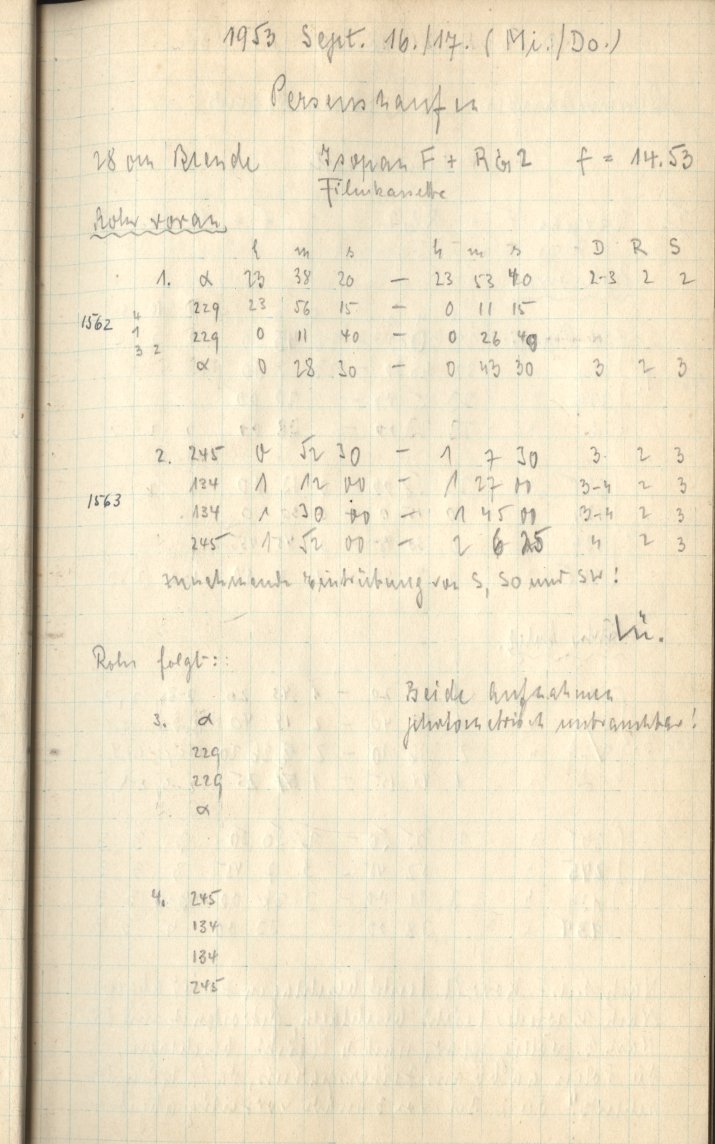 1953 Sept. 16./17. (Mi./Do.)
Perseushaufen
28 cm Blende Isopan F + RG 2 f = 14.53
Filmkassette
Rohr voran
h m s h m s D R S
1. α 23 38 20 — 23 53 40 2-3 2 2
4 229 23 56 15 — 0 11 15
1562 1 229 0 11 40 — 0 26 40
3 2 α 0 28 30 — 0 43 30 3 2 3
2. 245 0 52 30 — 1 7 30 3 2 3
134 1 12 00 — 1 27 00 3-4 2 3
1563 134 1 30 00 — 1 45 00 3-4 2 3
245 1 52 00 — 2 6 25 4 2 3
zunehmende Eintrübung von S, SO und SW!
Lü.
Rohr folgt:
Beide Aufnahmen
3. α photometrisch unbrauchbar!
229
229
α
4. 245
134
134
245